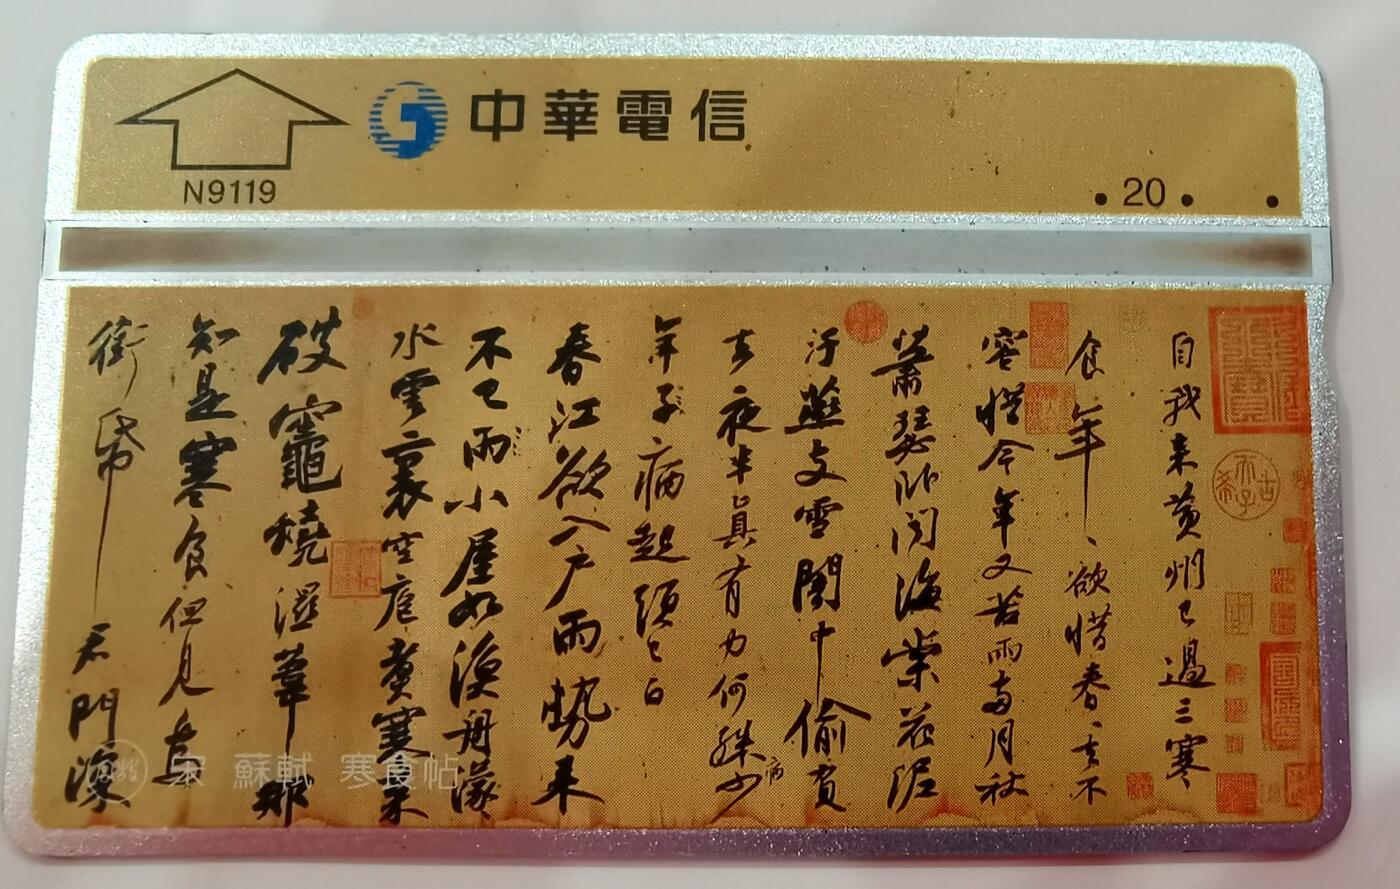 中華電信
N9119
20
自我來黃州已過三寒
食年年欲惜春春去不
容惜今年又苦雨兩月秋
蕭瑟臥聞海棠花泥
汙燕支雪闇中偷負
去夜半真有力何殊少
年子病起須已白
病
春江欲入戶雨勢來
不已雨小屋如漁舟濛濛
水雲裏空庖煮寒菜
破竈燒濕葦那
知是寒食但見烏
銜帋君門深
宋 蘇軾 寒食帖